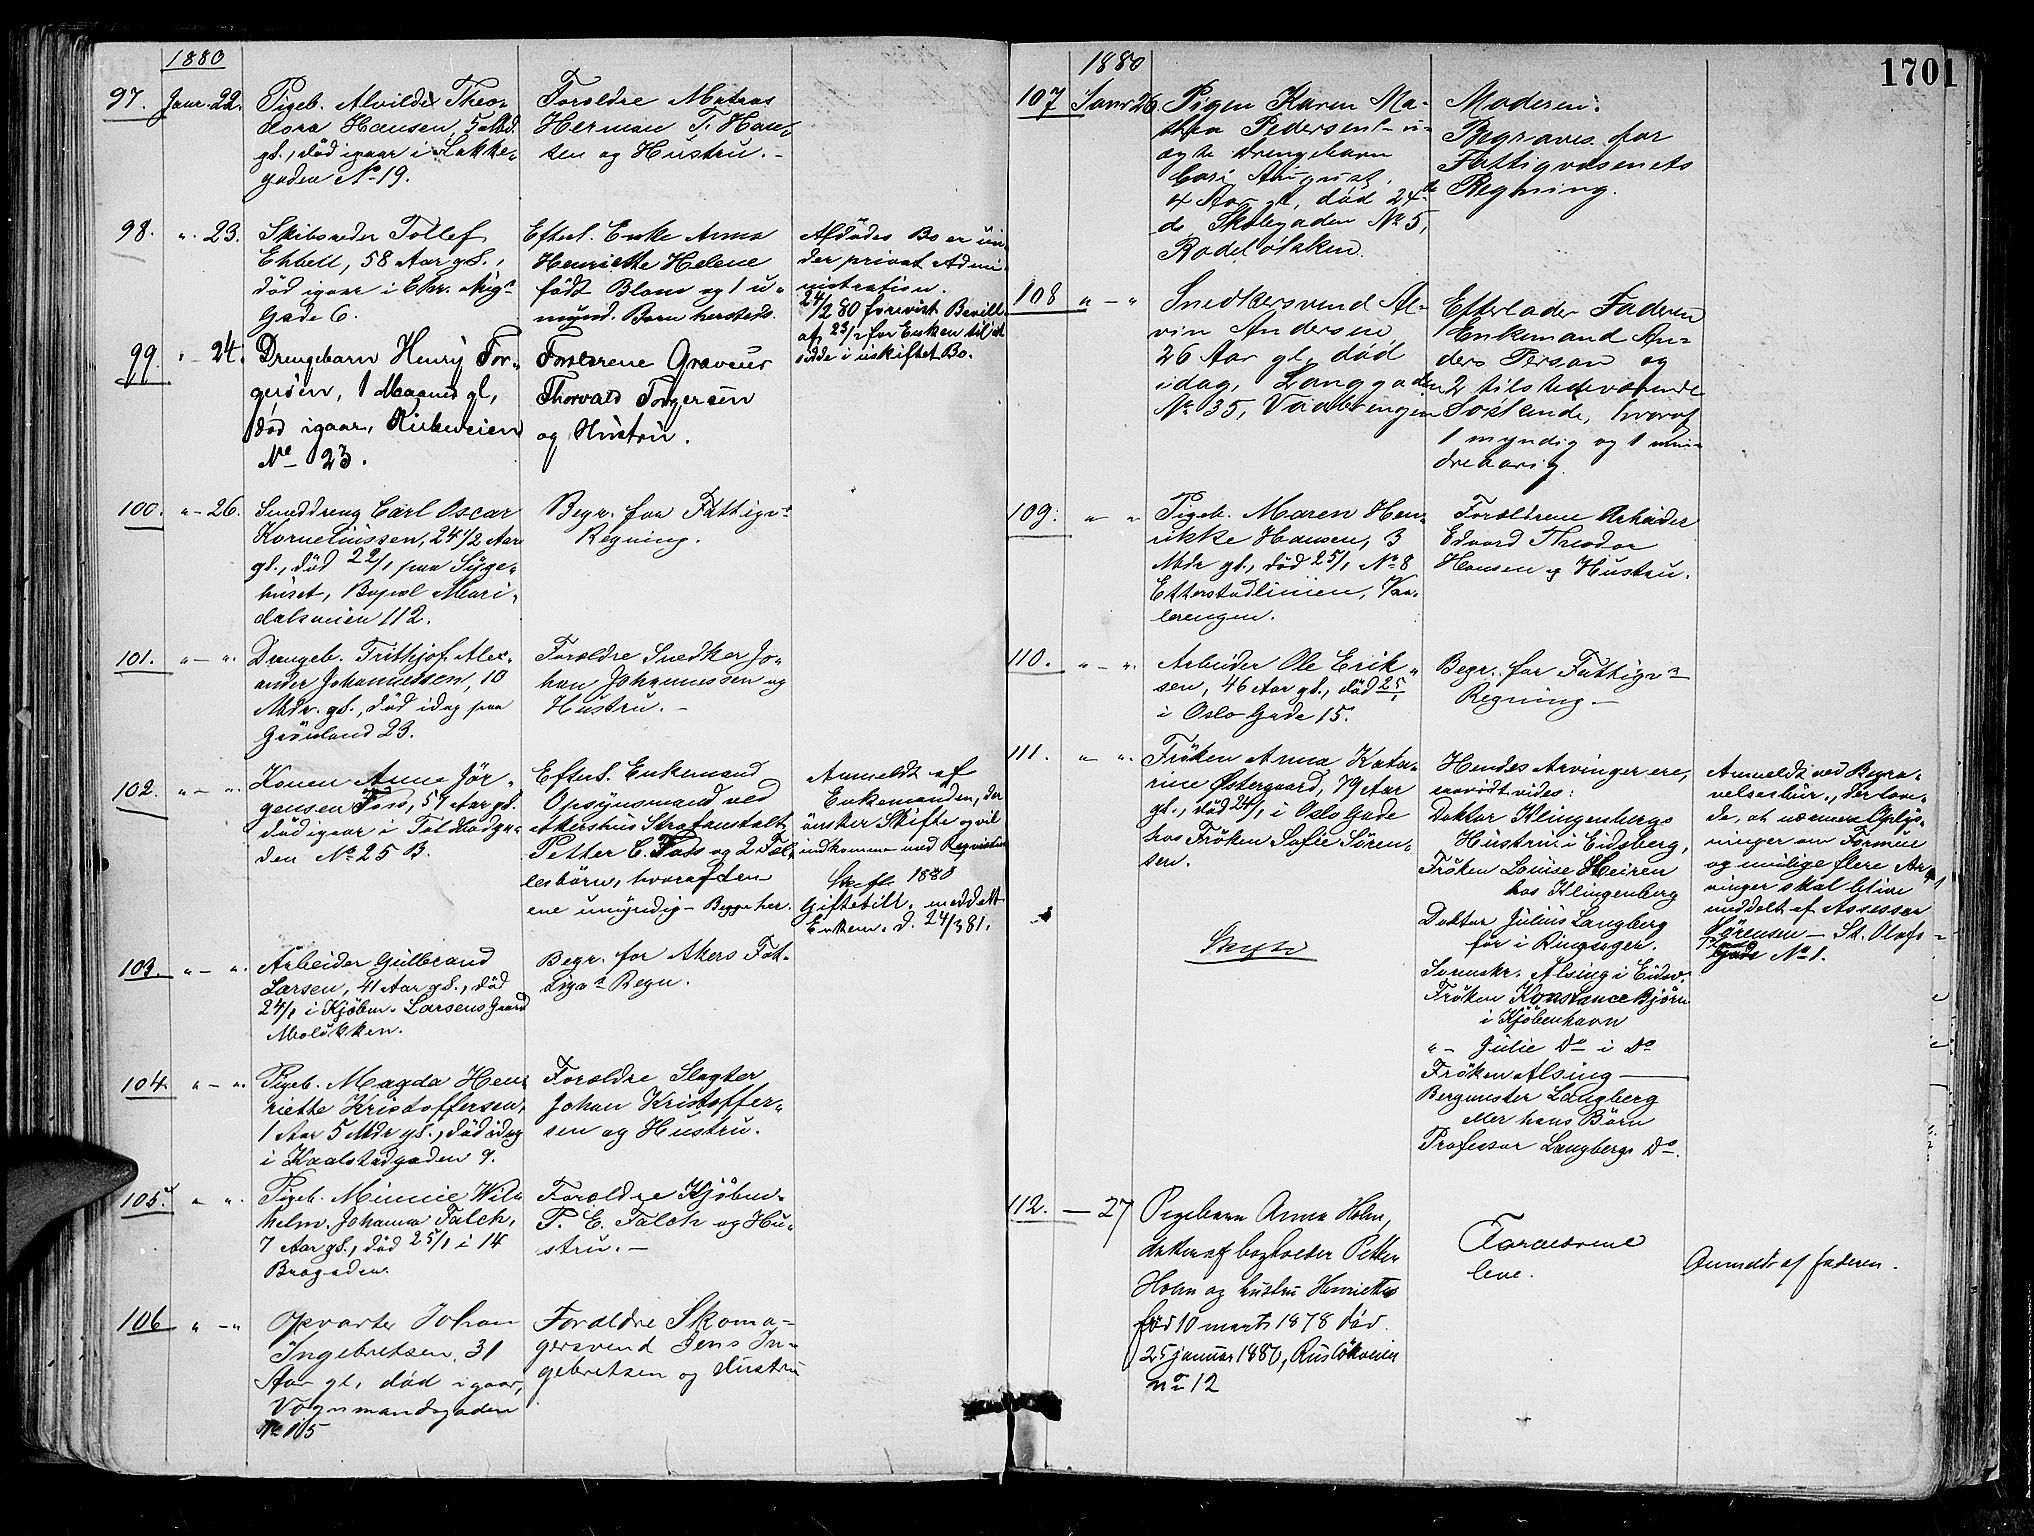 1880
97. Janr. 22. Pigeb. Alvilde Theo-
dora Hansen, 5 Md.
gl., død igaar i Lakke-
gaden No 19.
Foreldre Matros
Herman T. Han-
sen og Hustru. -
98. " 23. Skibsreder Tollef
Ebbell, 58 Aar gl.,
død igaar i Chr. Aug.
Gade 6.
Efterl. Enke Anna
Henriette Helene
født Blom og 1 u-
mynd. Barn hersteds.
Afdødes Bo er un-
der privat Admi-
nistration.
24/2 80 forevist Bevill.
af 23/2 for Enken til at
sidde i uskiftet Bo.
99. " - 24. Drengebarn Henry Tor-
gersen, 1 Maaned gl,
død igaar, Kirkeveien
No 23.
Forældrene Graveur
Thorvald Torgersen
og Hustru.
100. " - 26. Smeddreng Carl Oscar
Korneliussen, 24 1/2 Aar
gl., død 22/1 paa Syge-
huset, Bopæl Mari-
dalsveien 112.
Begr. for Fattigv.
Regning.
101. " - " Drengeb. Frithjof Alex-
ander Johannessen, 10
Mdr. gl., død idag paa
Grönland 23.
Forældre Snedker Jo-
han Johannessen og
Hustru. -
102. " - " Konen Anne Jör-
gensen Foss, 57 Aar gl.
död igaar i Toldbodga-
den No 25 B.
Efterl. Enkemand
Opsynsmand ved
Akershus Strafanstalt
Petter C. Foss og 2 Fæl-
lesbörn, hvoraf den
ene umyndig - Begge her.
Anmeldt af
Enkemanden, der
önsker Skifte og vil
indkomme med Reqvisition
Skifte 1880
Giftebill. meddelt
Enkem. d. 24/3 81.
103. " - " Arbeider Gulbrand
Larsen, 41 Aar gl., død
24/1 i Kjöbm. Larsens Gaard
Molökken.
Begr. for Akers Fat-
tigv. Regn.
104. " - " Pigeb. Magda Hen-
riette Kristoffersen,
1 Aar 5 Mdr gl., død idag
i Kaalstadgaden 9.
Forældre Slagter
Johan Kristoffer-
sen og Hustru.
105. " " Pigeb. Minnie Wil-
helm. Johanna Falch,
7 Aar gl., død 25/1 i 14
Brogaden.
Forældre Kjöbm.
P. E. Falch og Hu-
stru. -
106 " - " Opvarter Johan
Ingebretsen, 31
Aar gl, død igaar,
Vognmandsgaden
No 15
Forældre Skoma-
gersvend Jens In-
gebretsen og Hustru
1701
1880
107 Janr 26. Pigen Karen Ma-
thea Pedersens u-
ægte Drengebarn
Carl August,
4 Aar gl, død 24de
ds, Skolegaden No 5,
Rodelökken.
Moderen.
Begraves for
Fattigvæsenets
Regning.
108 " - " Snedkersvend Al-
vin Andersen
26 Aar gl, død
idag, Langgaden
No 35, Vaalerengen
Efterlader Faderen
Enkemand An-
ders Person og
2 tilstedeværende
Söskende, hvoraf
1 myndig og 1 min-
dreaarig.
109. " - " Pigeb. Maren Hen-
rikke Hansen, 3
Mdr gl., død 25/1 No 8
Etterstadlinien, Vaa-
lerengen.
Forældrene Arbeider
Edvard Theodor
Hansen og Hustru.
110. " - " Arbeider Ole Erik-
sen, 46 Aar gl., død 25/1
i Oslo Gade 15.
Begr. for Fattigv.
Regning -
111. " - " Fröken Anna Kata-
rine Østergaard, 79 Aar
gl., død 24/1 i Oslo Gade
hos Fröken Sofie Sören-
sen.
Skifte
Hendes Arvinger ere,
saavidt vides:
Doktor Klingenbergs
Hustru i Eidsberg,
Fröken Louise Heiren
hos Klingenberg
Doktor Julius Langberg
för i Ringsager.
Sorenskr. Alsing i Eidsv.
Fröken Konstance Bjørn
i Kjöbenhavn
" - Julie Do i Do
Fröken Alsing
Bergmester Langberg
eller hans Börn
Professor Langbergs Do.
Anmeldt ved Begra-
velsesbur., der love-
de, at nærmere Oplys-
ninger om Formue
og mulige flere Ar-
vinger skal blive
meddelt af Assessor
Sörensen - St. Olafs
Gade No 1.
112. - 27 Pigebarn Anna Holm,
datter af bogholder Petter
Holm og hustru Henriette
född 10 marts 1878 död
25 januar 1880, Ruslökveien
no 12
Forældrene
leve.
Anmeldt af faderen.